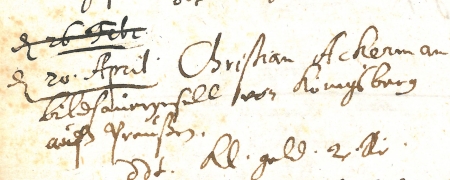 d 26 Febr
d 20. April Christian Ackerman
bildhauergesell von Königsberg
auß Preußen.
ddt. kl. geld. 2.